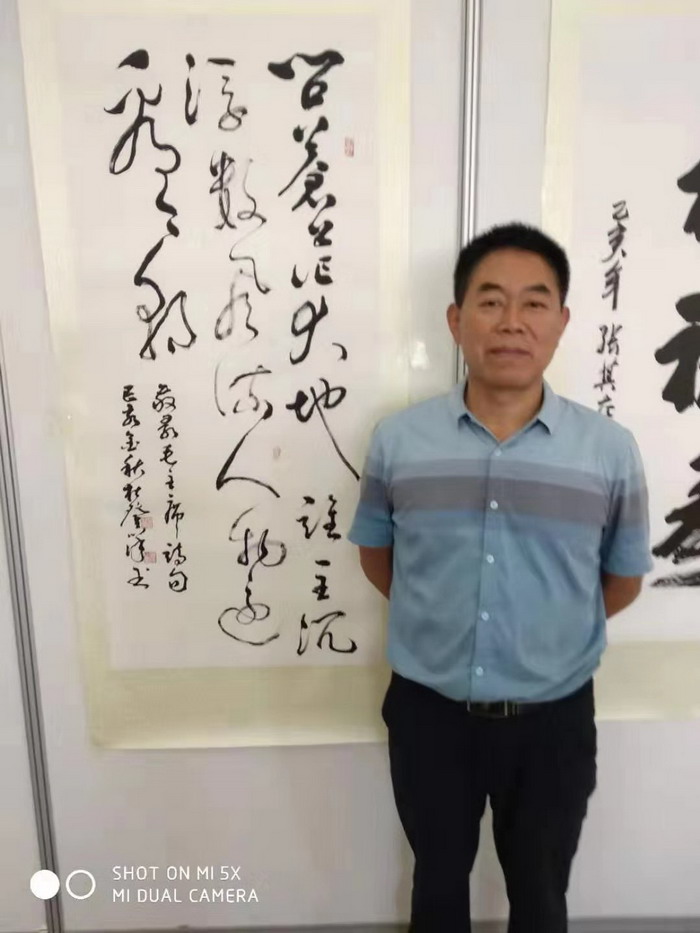 己亥年 张其
问苍茫大地谁主沉
浮数风流人物还
看今朝
敬录毛主席诗句
己亥金秋
SHOT ON MI 5X
MI DUAL CAMERA